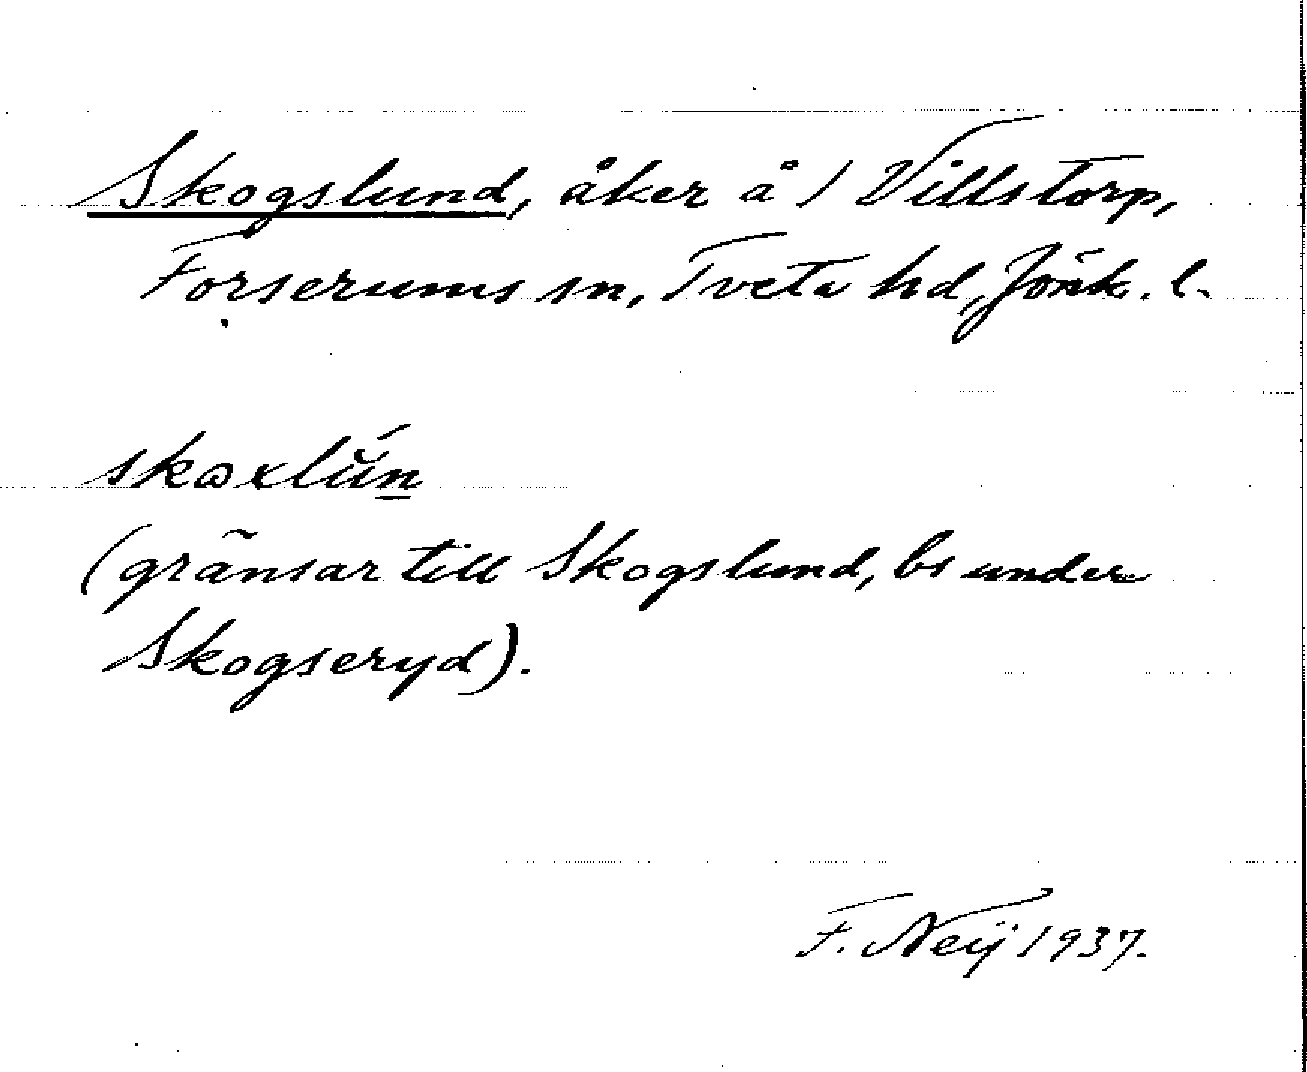 Skogslund, åker å 1 Villstorp,
Forserums sn, Tveta hd, Jönk. l.
(gränsar till Skogslund, bs under
Skogseryd).
F. Neij 1937.